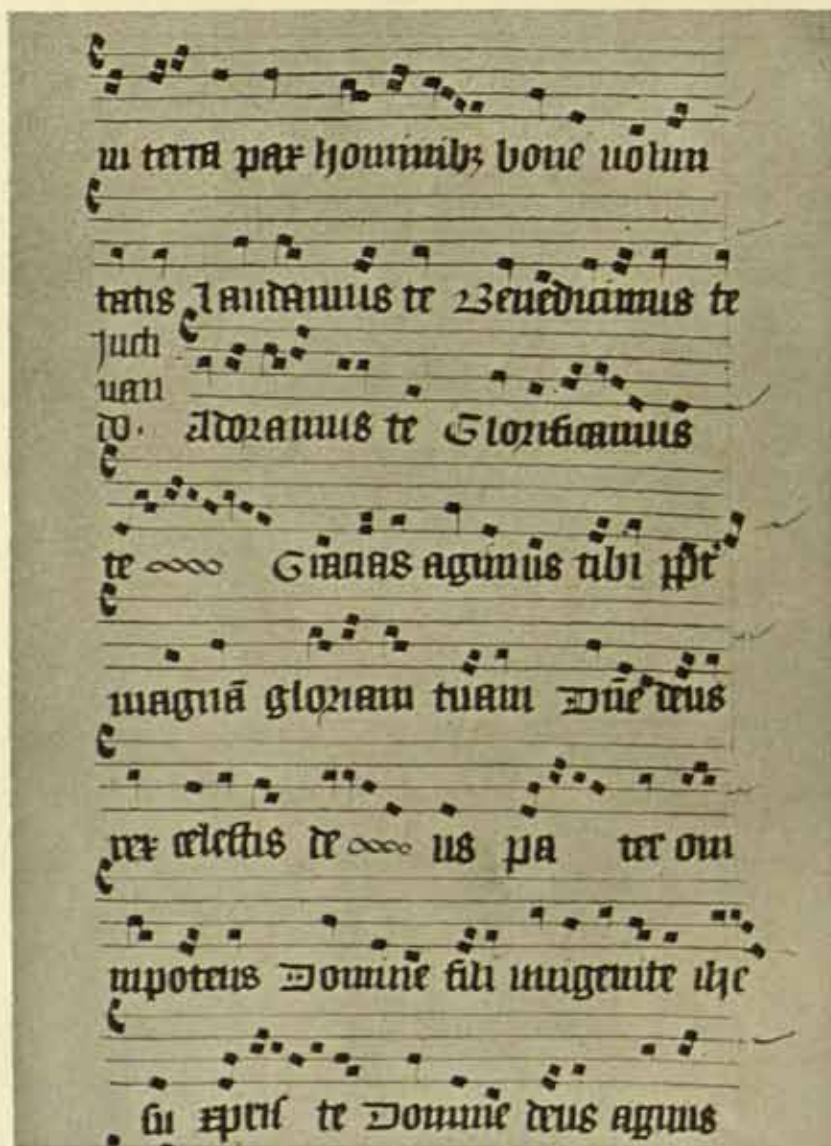 in terra pax hominibꝫ bone uolun
tatis Laudamus te Benedicimus te
Jucti
uan
do. Adoramus te Glorificamus
te Gratias agimus tibi ꝓpt̾
magnā gloriam tuam Dn̄e deus
rex celestis de us pa ter om
nipotens Domine fili unigenite ihe
su xp̄us te Domine deus agnus